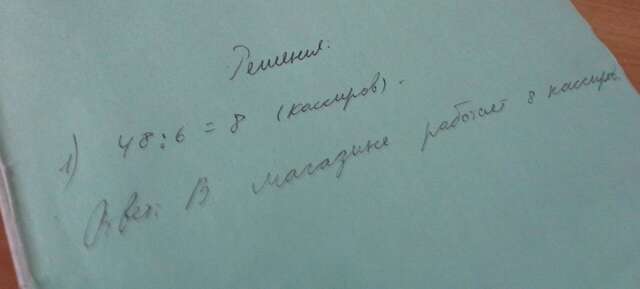 Решения.
1) 48:6 = 8 (кассиров).
Ответ: В магазине работает 8 кассиров